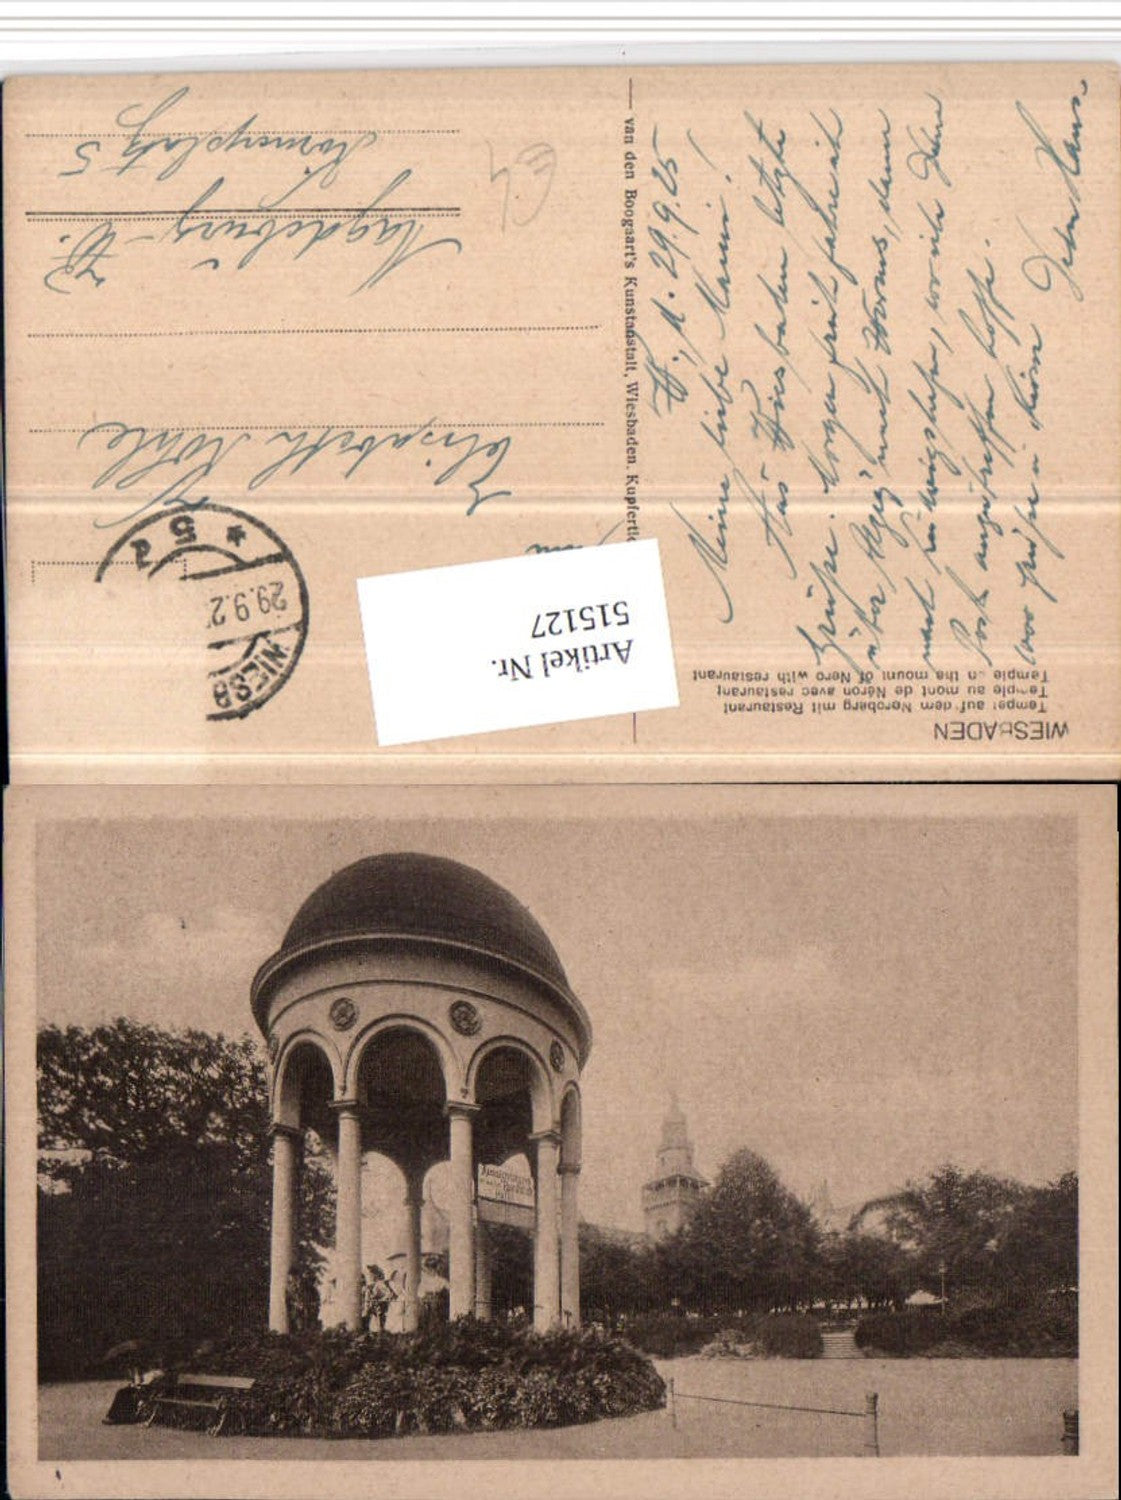 WIESBADEN
Tempel auf dem Neroberg mit Restaurant
Temple au mont de Néron avec restaurant
Temple on the mount of Nero with restaurant
W., d. 29.9.25
Meine liebe Mami!
Aus Wiesbaden letzte
Grüsse. Morgen früh fahre ich
über nach Worms, dann
nach Ludwigshafen, wo ich Deine
Post anzutreffen hoffe.
1000 Grüsse u. Küsse Dein Hans.
van den Boogaart's Kunstanstalt, Wiesbaden. Kupfertie
Artikel Nr.
515127
WIESB
29.9.2
Elisabeth
Magdeburg-W.
5